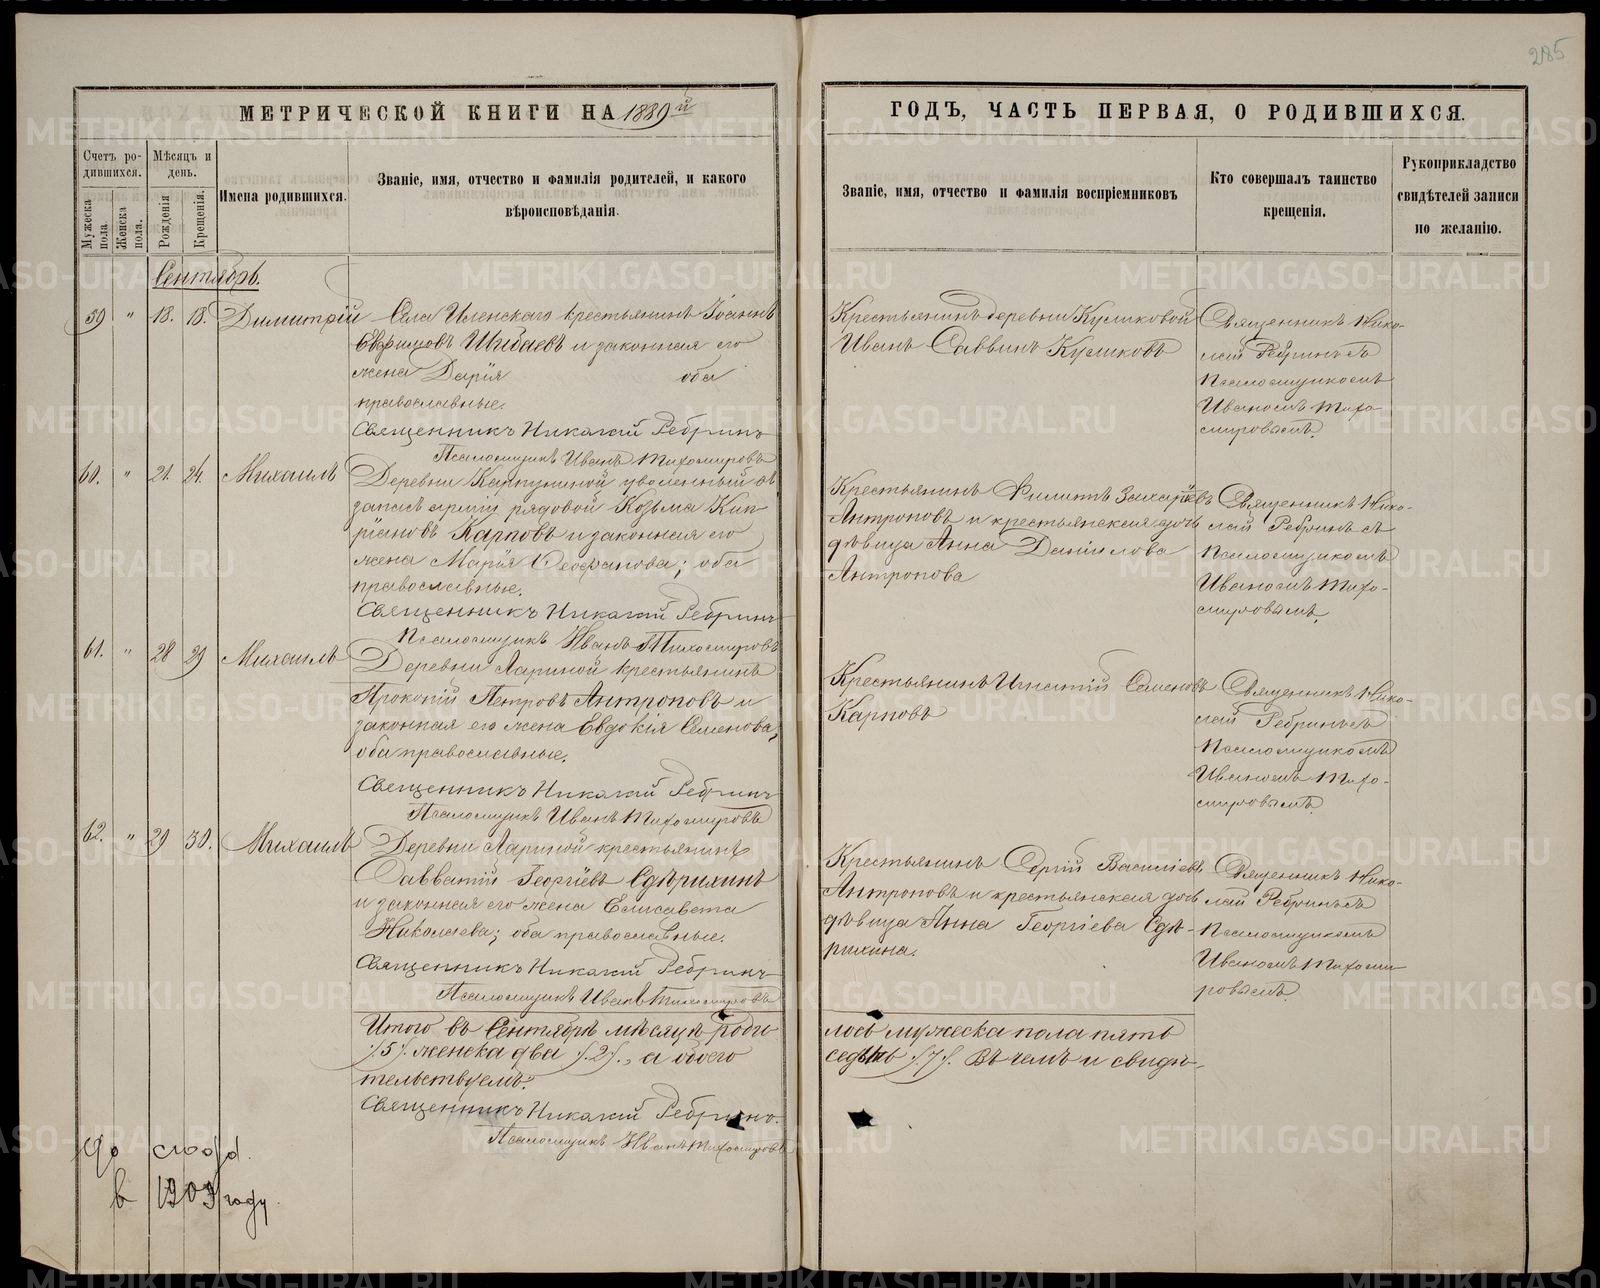 285
МЕТРИЧЕСКОЙ КНИГИ НА 1889й
ГОДЪ, ЧАСТЬ ПЕРВАЯ, О РОДИВШИХСЯ.
Счетъ ро-
дившихся.
Мужеска пола.
Женска пола.
Мѣсяцъ и
день.
Рожденія
Крещенія.
Имена родившихся.
Званіе, имя, отчество и фамилія родителей, и какого
вѣроисповѣданія.
Званіе, имя, отчество и фамилія воспріемниковъ
Кто совершалъ таинство
крещенія.
Рукоприкладство
свидѣтелей записи
по желанію.
Сентябрь.
59 " 18. 18. Димитрій
Села Иленскаго крестьянинъ Іоаннъ
Евфимовъ Шибаевъ и законная его
жена Дарія оба
православные.
Священникъ Николай Ребринъ
Псаломщикъ Иванъ Тихомировъ
Крестьянинъ деревни Куликовой
Иванъ Саввинъ Куликовъ
Священникъ Нико-
лай Ребринъ съ
Псаломщикомъ
Иваномъ Тихо-
мировымъ.
60. " 21. 24. Михаилъ
Деревни Карпуниной уволенный въ
запасъ арміи рядовой Козьма Кип-
ріановъ Карповъ и законная его
жена Марія Феофанова; оба
православные.
Священникъ Николай Ребринъ
Псаломщикъ Иванъ Тихомировъ
Крестьянинъ Филиппъ Захаріевъ
Антроповъ и крестьянская дочь
дѣвица Анна Даніилова
Антропова
Священникъ Нико-
лай Ребринъ съ
Псаломщикомъ
Иваномъ Тихо-
мировымъ.
61. " 28 29 Михаилъ
Деревни Лариной крестьянинъ
Прокопій Петровъ Антроповъ и
законная его жена Евдокія Семенова,
оба православные.
Священникъ Николай Ребринъ
Псаломщикъ Иванъ Тихомировъ
Крестьянинъ Игнатій Семеновъ
Карповъ
Священникъ Нико-
лай Ребринъ съ
Псаломщикомъ
Иваномъ Тихо-
мировымъ
62. " 29 30. Михаилъ
Деревни Лариной крестьянинъ
Савватій Георгіевъ Сдѣрихинъ
и законная его жена Елисавета
Николаева; оба православные.
Священникъ Николай Ребринъ
Псаломщикъ Иванъ Тихомировъ
Крестьянинъ Сергій Василіевъ
Антроповъ и крестьянская дочь
дѣвица Анна Георгіева Сдѣ-
рихина.
Священникъ Нико-
лай Ребринъ съ
Псаломщикомъ
Иваномъ Тихоми-
ровымъ
Итого въ Сентябрѣ мѣсяцѣ роди
лось мужеска пола пять
/5/. женска два /.2/., а обоего
седмь /7/. Въ чемъ и свидѣ-
тельствуемъ:
Священникъ Николай Ребринъ.
Псаломщикъ Иванъ Тихомировъ
в 1909 году.
METRIKI.GASO-URAL.RU